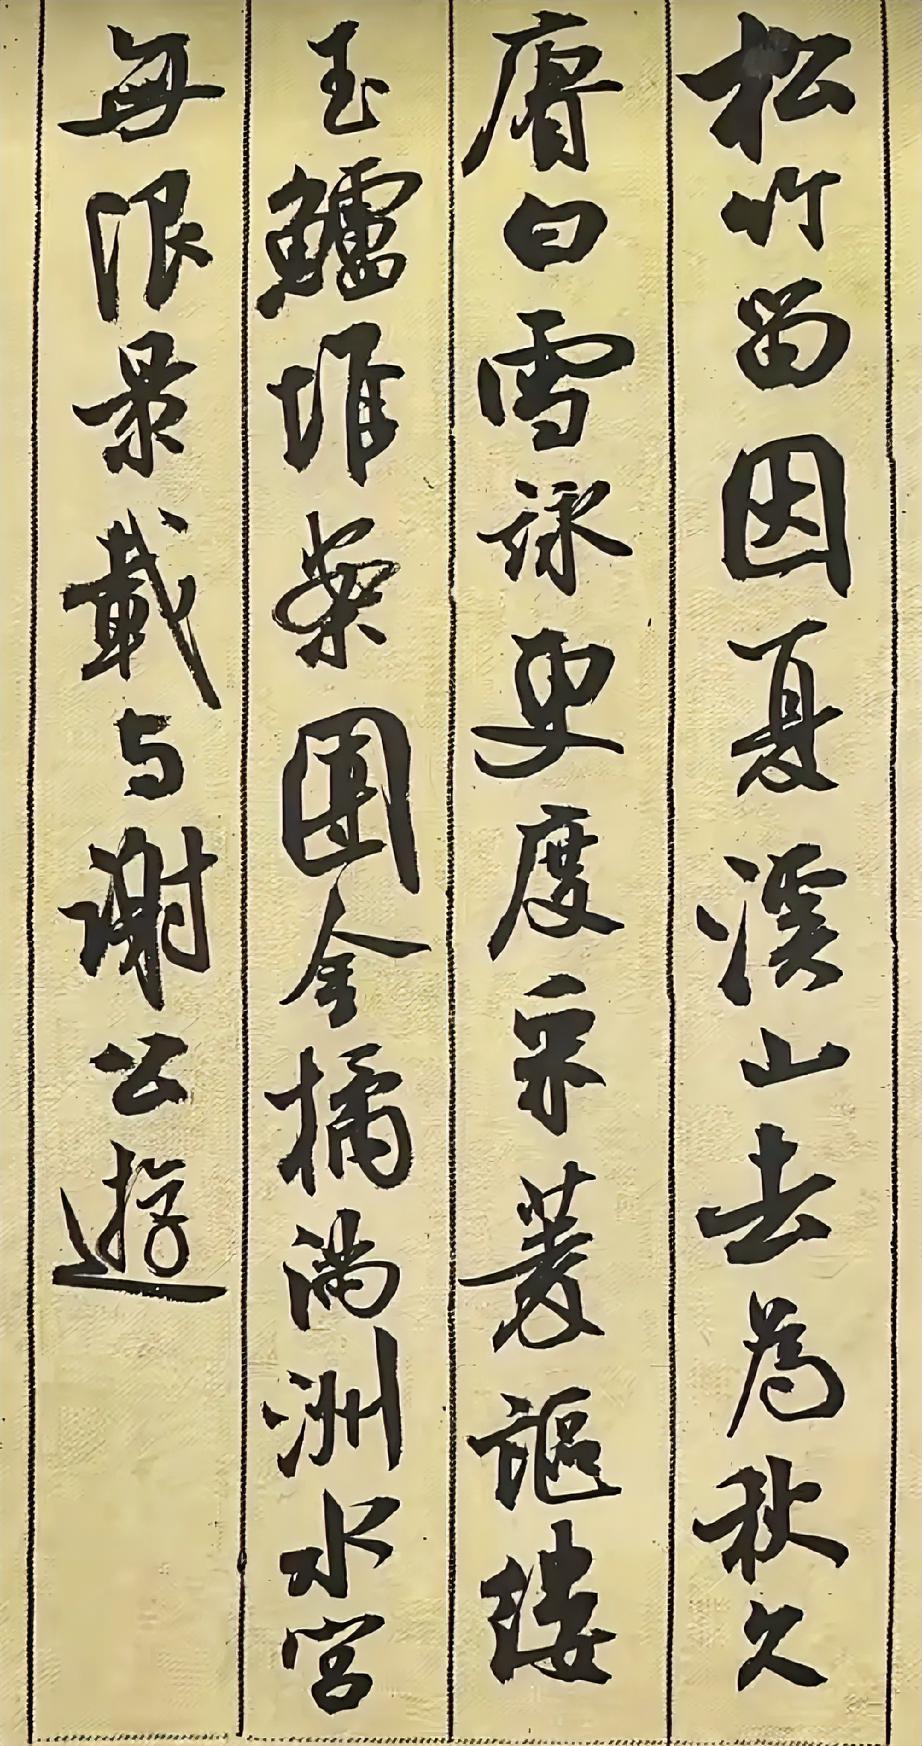 松竹留因夏溪山去為秋久
賡白雪詠更度采菱謳縷
玉鱸堆案團金橘滿洲水宮
無限景載与謝公遊